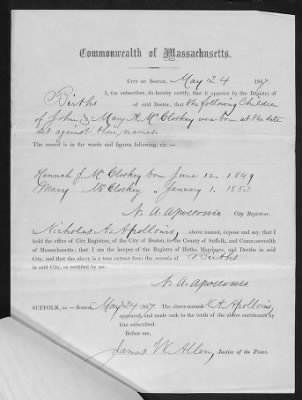 Commonwealth of Massachusetts.
CITY OF BOSTON, May 24 1867
I, the subscriber, do hereby certify, that it appears by the Registry of
Births of said Boston, that the following Children
of John & Mary A. McCloskey were born at the date
set against their names.
The record is in the words and figures following, viz:—
Hannah J. McCloskey born June 12. 1849
Mary McCloskey " January 1. 1852
N. A. Apollonio City Registrar.
I, Nicholas A. Apollonio, above named, depose and say, that I
hold the office of City Registrar, of the City of Boston, in the County of Suffolk, and Commonwealth
of Massachusetts; that I am the keeper of the Registry of Births, Marriages, and Deaths in said
City, and that the above is a true extract from the records of Births
in said City, as certified by me.
N. A. Apollonio
SUFFOLK, ss.—Boston, May 24 1867. The above-named N. A. Apollonio,
appeared, and made oath to the truth of the above certificate by
him subscribed.
Before me,
James W. Allen, Justice of the Peace.